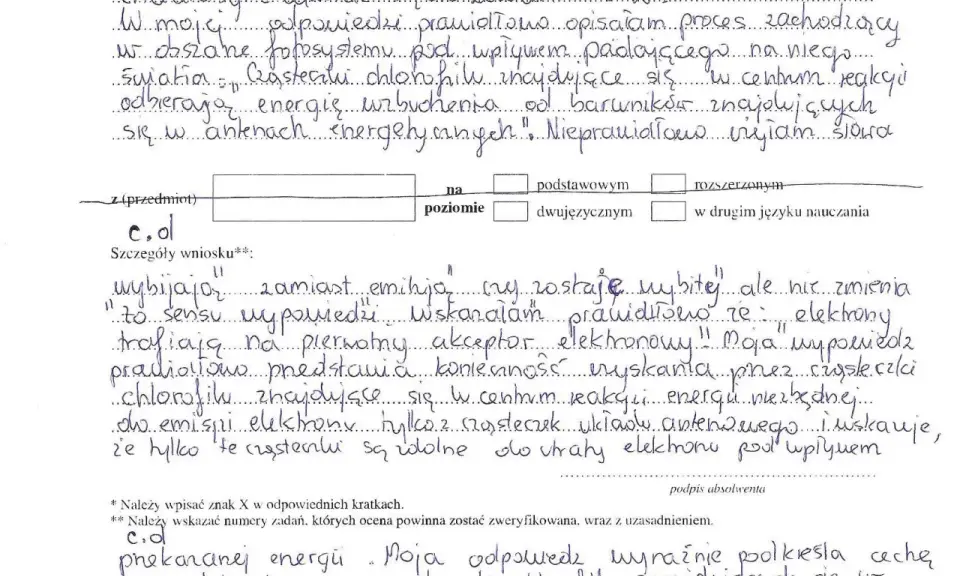 W mojej odpowiedzi prawidłowo opisałam proces zachodzący
w obszarze fotosystemu pod wpływem padającego na niego
światła - "Cząsteczki chlorofilu znajdujące się w centrum reakcji
odbierają energię wzbudzenia od barwników znajdujących
się w antenach energetycznych". Nieprawidłowo użyłam słowa
z (przedmiot) na poziomie podstawowym rozszerzonym
dwujęzycznym w drugim języku nauczania
c.d
Szczegóły wniosku**:
wybijają" zamiast emitują" czy zostaję wybitej" ale nie zmienia
"to sensu wypowiedzi. wskazałam" prawidłowo że: elektrony
trafiają na pierwotny akceptor elektronowy!" Moja wypowiedz
prawidłowo przedstawia konieczność uzyskania przez cząsteczki
chlorofilu znajdujące się w centrum reakcji energii niezbędnej
do emisji elektronu tylko z cząsteczek układu antenowego i wskazuje,
że tylko te cząsteczki są zdolne do utraty elektronu pod wpływem
podpis absolwenta
* Należy wpisać znak X w odpowiednich kratkach.
** Należy wskazać numery zadań, których ocena powinna zostać zweryfikowana, wraz z uzasadnieniem.
c.d
przekazanej energii. Moja odpowiedz wyraźnie podkreśla cechę